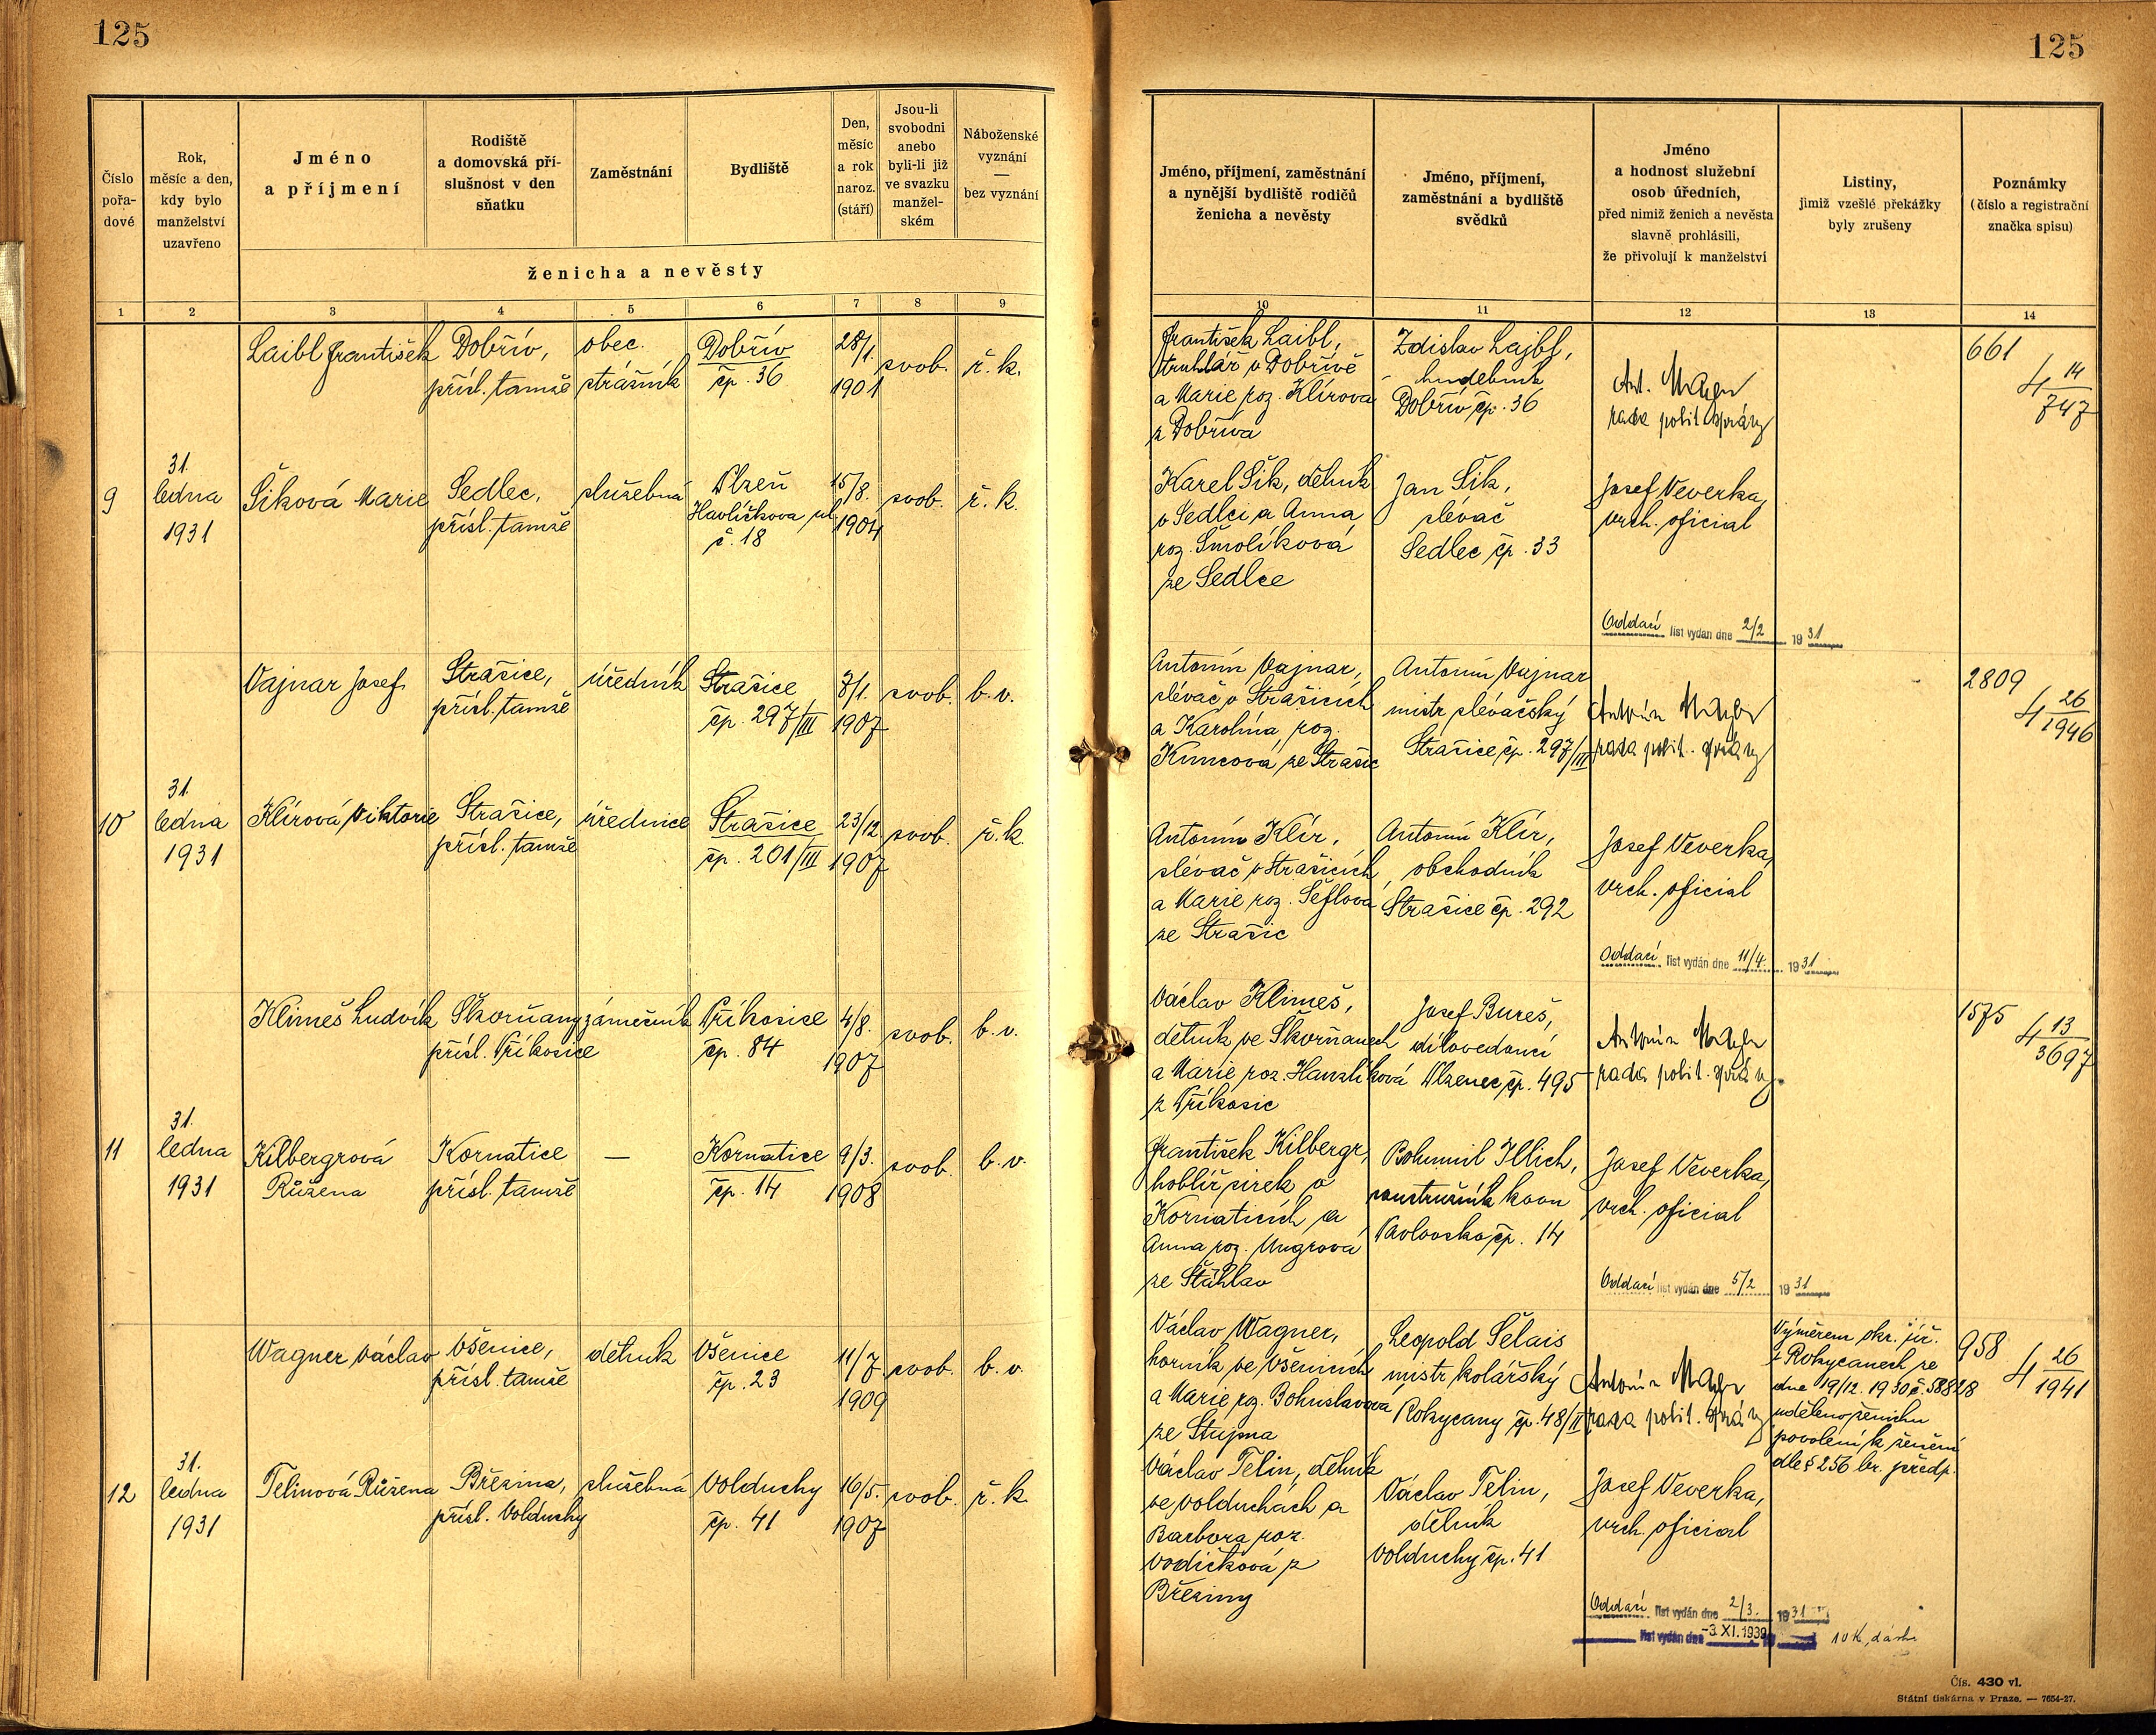 125
125
Číslo
pořa-
dové
Rok,
měsíc a den,
kdy bylo
manželství
uzavřeno
Jméno
a příjmení
Rodiště
a domovská pří-
slušnost v den
sňatku
Zaměstnání
Bydliště
Den,
měsíc
a rok
naroz.
(stáří)
Jsou-li
svobodni
anebo
byli-li již
ve svazku
manžel-
ském
Náboženské
vyznání
—
bez vyznání
ženicha a nevěsty
1 2 3 4 5 6 7 8 9
Jméno, příjmení, zaměstnání
a nynější bydliště rodičů
ženicha a nevěsty
Jméno, příjmení,
zaměstnání a bydliště
svědků
Jméno
a hodnost služební
osob úředních,
před nimiž ženich a nevěsta
slavně prohlásili,
že přivolují k manželství
Listiny,
jimiž vzešlé překážky
byly zrušeny
Poznámky
(číslo a registrační
značka spisu)
10 11 12 13 14
Laibl František
Dobřív,
přísl. tamže
obec.
strážník
Dobřív
čp. 36
28/1.
1901
svob.
ř. k.
František Laibl,
truhlář v Dobřívě
a Marie roz. Klírova
z Dobříva
Zdislav Lajbl,
hudebník
Dobřív čp. 36
Ant.
rada polit. správy
661
4 14
747
9
31.
ledna
1931
Šiková Marie
Sedlec,
přísl. tamže
služebná
Plzeň
Havlíčkova ul.
č. 18
15/8.
1904
svob.
ř. k.
Karel Šik, dělník
v Sedlci a Anna
roz. Šmolíková
ze Sedlce
Jan Šik,
slévač
Sedlec čp. 33
Josef Veverka,
vrch. oficial
Oddací list vydán dne 2/2 1931
Vajnar Josef
Strašice,
přísl. tamže
úředník
Strašice
čp. 297/III
7/1.
1907
svob.
b. v.
Antonín Vajnar,
slévač v Strašicích
a Karolína roz.
Kuncová ze Strašic
Antonín Vajnar
mistr slévačský
Strašice čp. 297/III
Antonín
rada polit. správy
2809
4 26
1946
10
31.
ledna
1931
Klírová Viktorie
Strašice,
přísl. tamže
úřednice
Strašice
čp. 201/III
23/12
1907
svob.
ř. k.
Antonín Klír,
slévač v Strašicích
a Marie roz. Šeflová
ze Strašic
Antonín Klír,
obchodník
Strašice čp. 292
Josef Veverka,
vrch. oficial
Oddací list vydán dne 11/4. 1931
Klimeš Ludvík
Škorňany
přísl. Příkosice
zámečník
Příkosice
čp. 84
4/8.
1907
svob.
b. v.
Václav Klimeš,
dělník ve Škorňanech
a Marie roz. Hanzlíková
z Příkosic
Josef Bureš,
dílovedoucí
Plzenec čp. 495
Antonín
rada polit. správy
1575
4 13
3697
11
31.
ledna
1931
Kilbergrová
Růžena
Kornatice
přísl. tamže
—
Kornatice
čp. 14
9/3.
1908
svob.
b. v.
František Kilbergr,
hoblíř sirek v
Kornaticích a
Anna roz. Ungrová
ze Štáhlav
Bohumil Illich,
soustružník kovu
Pavlovsko čp. 14
Josef Veverka,
vrch. oficial
Oddací list vydán dne 5/2 1931
Wagner Václav
Všenice,
přísl. tamže
dělník
Všenice
čp. 23
11/7.
1909
svob.
b. v.
Václav Wagner,
horník ve Všenicích
a Marie roz. Bohuslavová
ze Stupna
Leopold Selais
mistr kolářský
Rokycany čp. 48/II
Antonín
rada polit. správy
Výměrem okr. úř.
v Rokycanech ze
dne 19/12. 1930 č. 58828
uděleno ženichu
povolení k ženění
dle § 256 br. předp.
958
4 26
1941
12
31.
ledna
1931
Telinová Růžena
Březina,
přísl. Volduchy
služebná
Volduchy
čp. 41
16/5.
1907
svob.
ř. k.
Václav Telin, dělník
ve Volduchách a
Barbora roz.
Vodičková z
Březiny
Václav Telin,
dělník
Volduchy čp. 41
Josef Veverka,
vrch. oficial
Oddací list vydán dne 2/3. 1931
list vydán dne -3.XI.1939 19
10 K, dávka
Čís. 430 vl.
Státní tiskárna v Praze. — 7654-27.